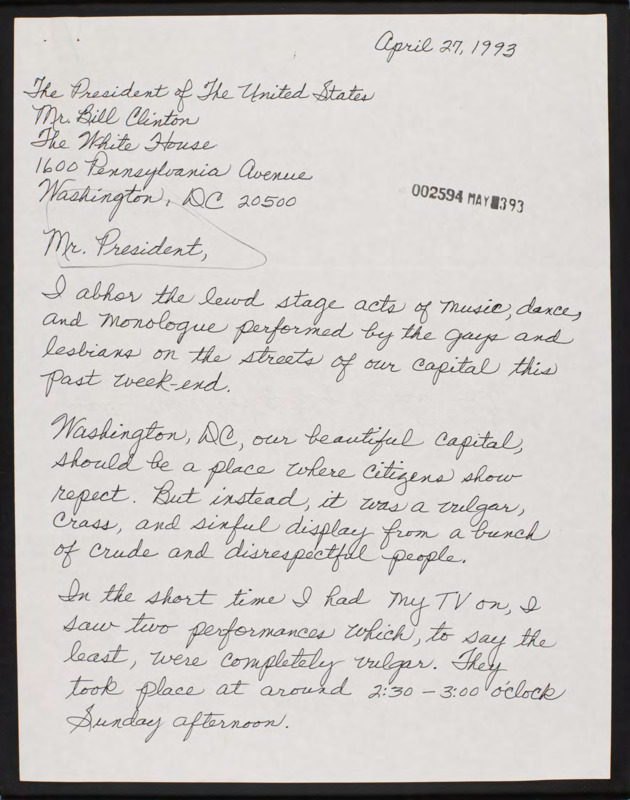 April 27, 1993
The President of The United States
Mr. Bill Clinton
The White House
1600 Pennsylvania Avenue
Washington, DC 20500
002594 MAY 393
Mr. President,
I abhor the lewd stage acts of music, dance,
and monologue performed by the gays and
lesbians on the streets of our capital this
past week-end.
Washington, DC, our beautiful capital,
should be a place where citizens show
repect. But instead, it was a vulgar,
crass, and sinful display from a bunch
of crude and disrespectful people.
In the short time I had my TV on, I
saw two performances which, to say the
least, were completely vulgar. They
took place at around 2:30 – 3:00 o'clock
Sunday afternoon.